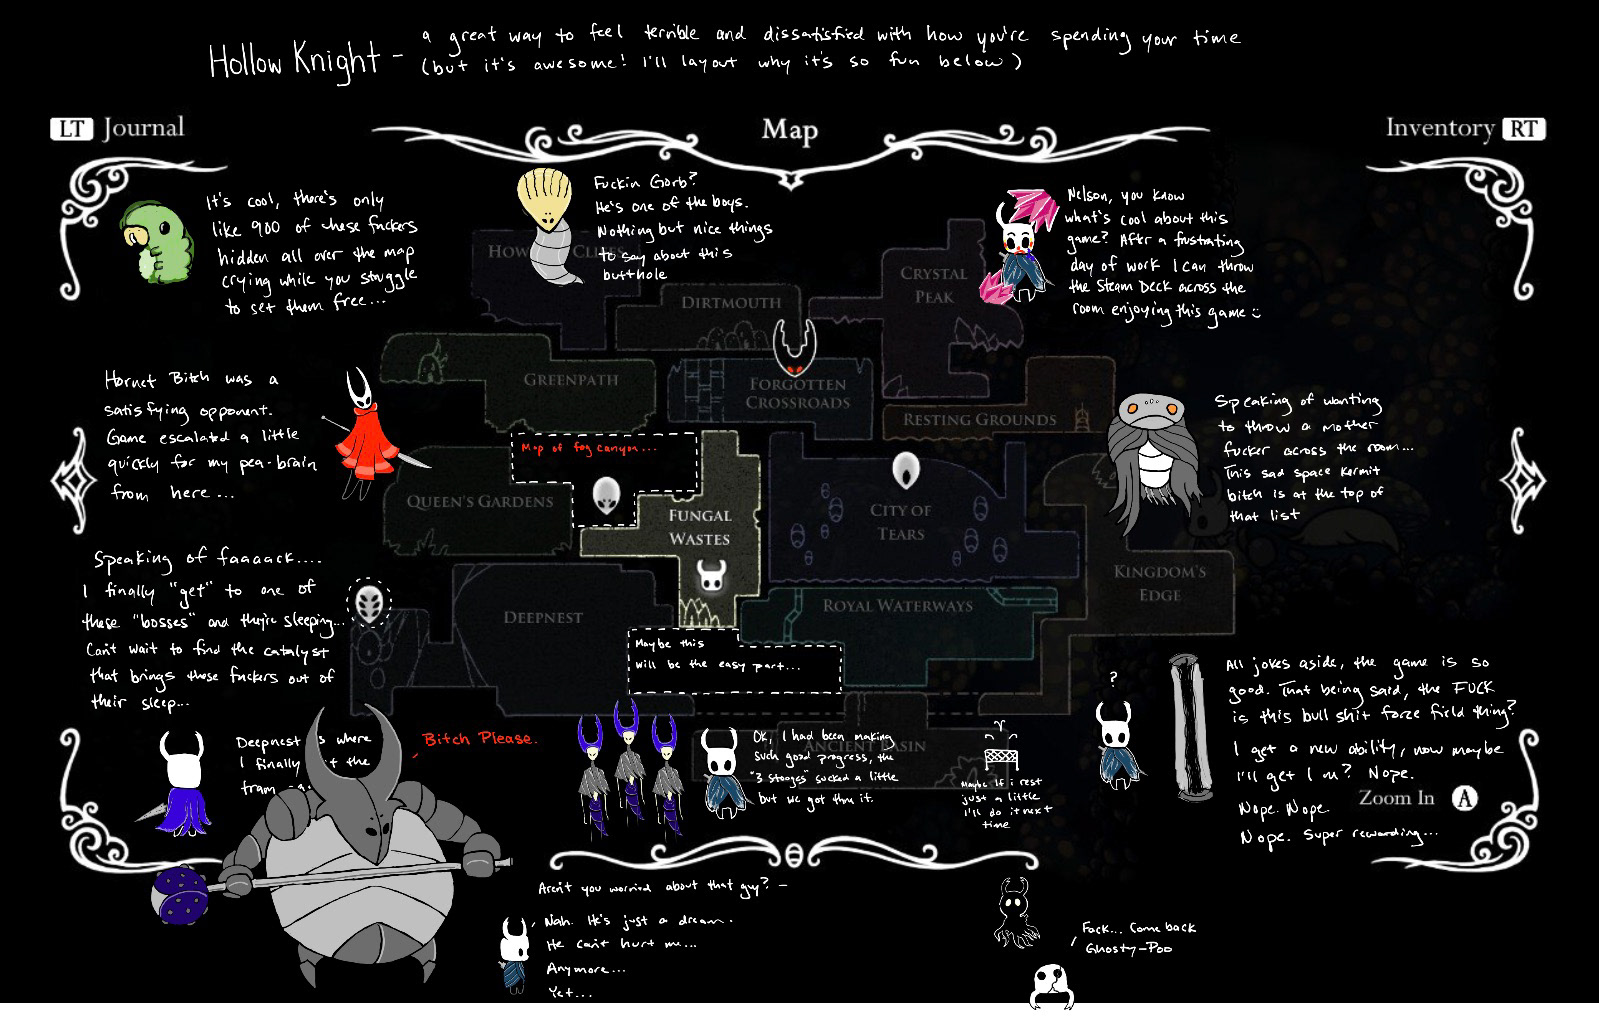 Hollow Knight - a great way to feel terrible and dissatisfied with how you're spending your time
(but it's awesome! I'll layout why it's so fun below)
LT Journal
Map
Inventory RT
It's cool, there's only
like 900 of these fuckers
hidden all over the map
crying while you struggle
to set them free...
Fuckin Gorb?
He's one of the boys.
Nothing but nice things
to say about this
butthole
Nelson, you know
what's cool about this
game? After a frustrating
day of work I can throw
the Steam Deck across the
room enjoying this game :)
DIRTMOUTH
CRYSTAL
PEAK
GREENPATH
FORGOTTEN
CROSSROADS
RESTING GROUNDS
Hornet Bitch was a
satisfying opponent.
Game escalated a little
quickly for my pea-brain
from here...
Map of fog canyon...
QUEEN'S GARDENS
FUNGAL
WASTES
CITY OF
TEARS
Speaking of wanting
to throw a mother
fucker across the room...
This sad space kermit
bitch is at the top of
that list
KINGDOM'S
EDGE
Speaking of faaaack....
I finally "get" to one of
these "bosses" and they're sleeping...
Can't wait to find the catalyst
that brings these fuckers out of
their sleep...
DEEPNEST
ROYAL WATERWAYS
Maybe this
will be the easy part...
All jokes aside, the game is so
good. That being said, the FUCK
is this bull shit force field thing?
I get a new ability, now maybe
I'll get I in? Nope.
Nope. Nope.
Nope. Super rewarding...
?
Zoom In A
Deepnest is where
I finally the
Bitch Please.
ANCIENT BASIN
Ok, I had been making
such good progress, the
"3 stooges" sucked a little
but we got thru it.
Maybe if i rest
just a little
I'll do it next
time
Aren't you worried about that guy? -
Nah. He's just a dream.
He can't hurt me...
Anymore...
Yet...
Fack... Come back
Ghosty-Poo